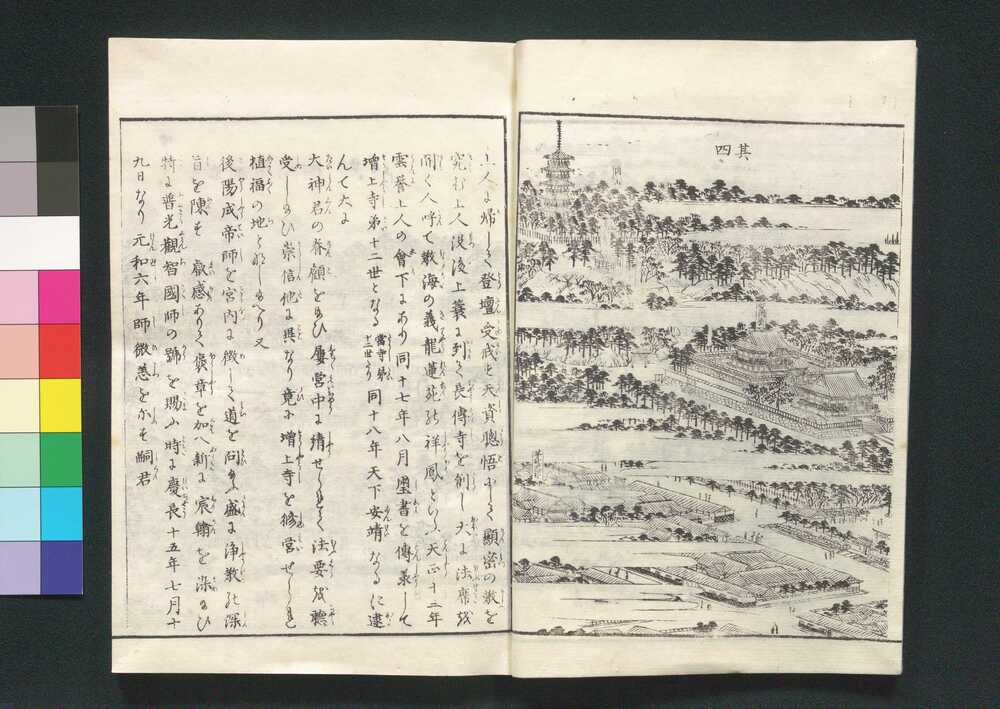 其四
上人に帰して登壇受戒す天資聰悟にして顯密の教を
究む上人没後上䕃に到りて長傳寺を創し大に法雷を
開く人呼て教海の義龍蓮苑の祥鳳といふ天正十二年
雲誉上人の會下にあり同十七年八月璽書を傳承して
増上寺第十二世となる當寺第十二世なり同十八年天下安靖なるに逮
んて大に
大神君の眷顧をかうむり營中に請せられて法要を聴
受し給ひ崇信他に異なり竟に増上寺を修営せられ
植福の地となし給へり又
後陽成帝師を宮内に徴して道を問ひ盛に浄教の深
旨を陳す 叡感ありて褒章を加へ新に宸翰を染給ひ
特に普光觀智國師の號を賜ふ時に慶長十五年七月十
九日なり元和六年師微恙をかんす嗣君